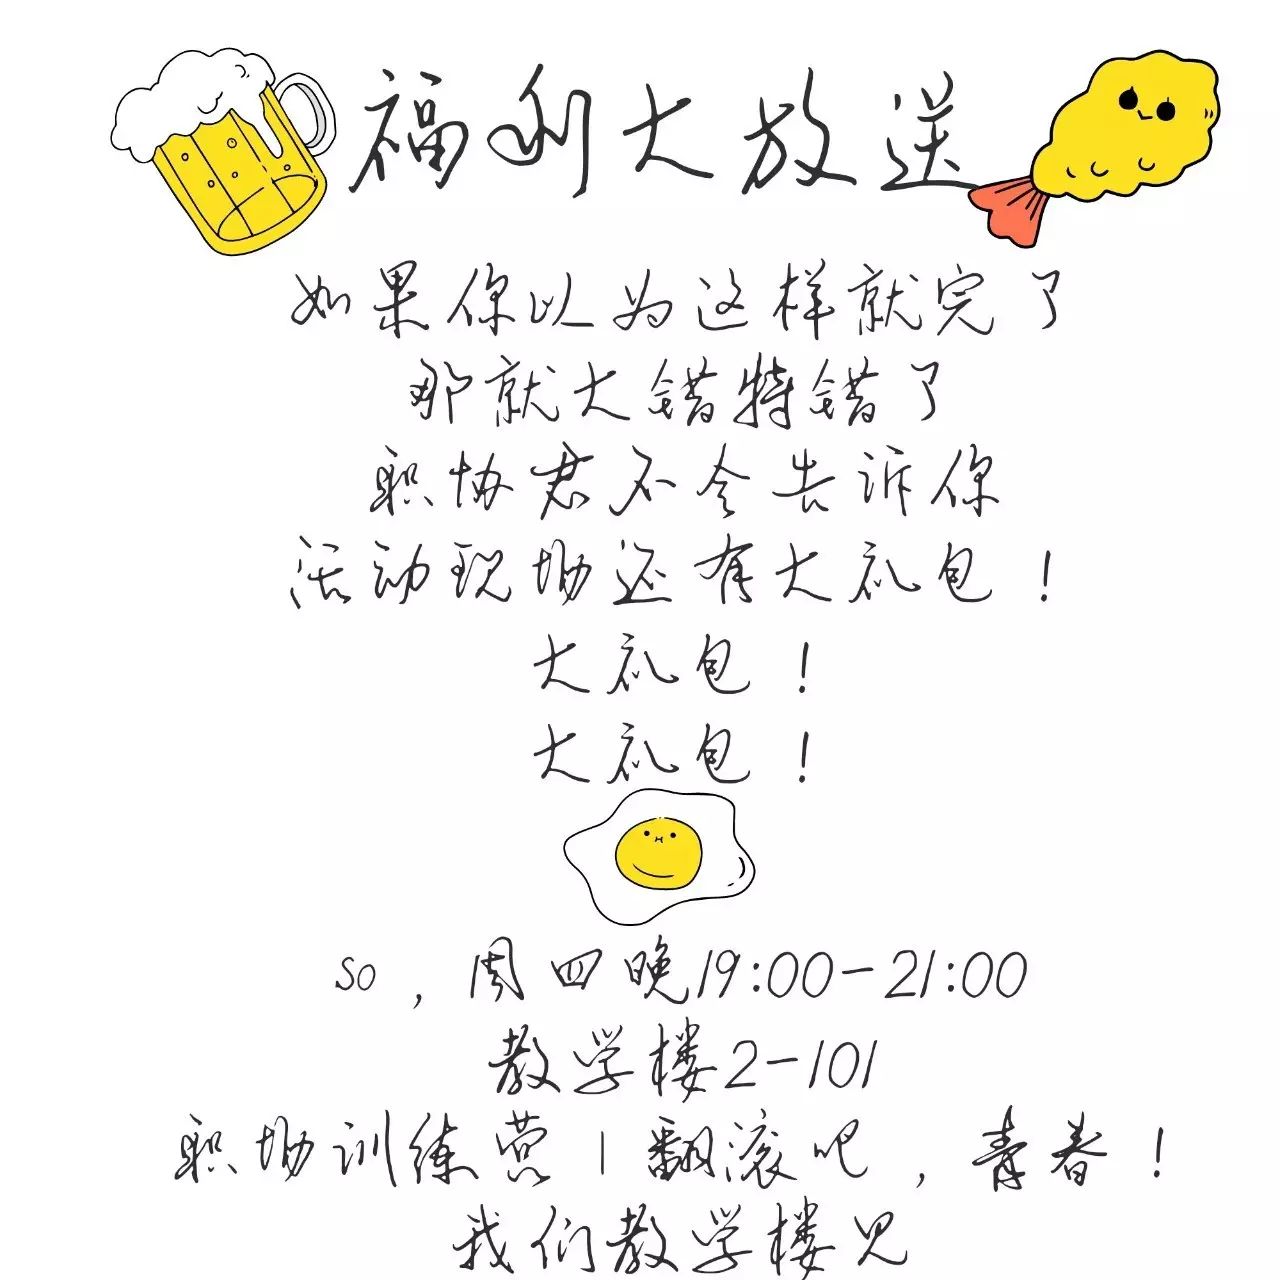 福利大放送
如果你以为这样就完了
那就大错特错了
职协君不会告诉你
活动现场还有大礼包！
大礼包！
大礼包！
so，周四晚19:00-21:00
教学楼2-101
职场训练营|翻滚吧，青春！
我们教学楼见